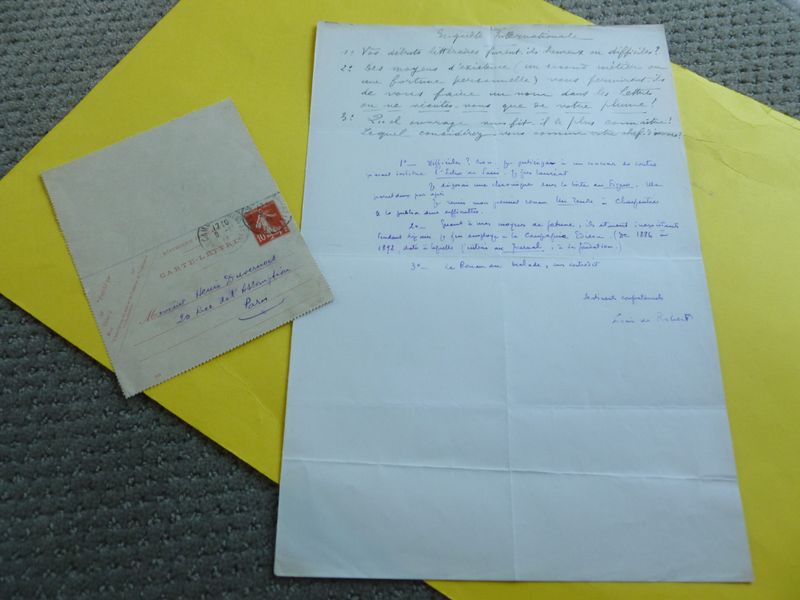 Enquête Internationale
1º Vos débuts littéraires furent-ils heureux ou difficiles?
2º Des moyens d'existence (un second métier ou
une fortune personnelle) vous permirent-ils
de vous faire un nom dans les lettres
ou ne vécûtes-vous que de votre plume?
3º Quel ouvrage vous fit il le plus connaître?
Lequel considérez-vous comme votre chef d'œuvre?
1º — Difficiles? Non. Je participai à un concours de contes
l'Echo de Paris. J'y fus lauréat
J'y déposai une chronique dans la boîte du Figaro. Elle
parut deux jours après
Je remis mon premier roman Un tendre à Charpentier
qui le publia sans difficultés.
2º — Quant à mes moyens de fortune, ils étaient inexistants
Pendant six ans je fus employé à la Compagnie (de 1886 à
1892, date à laquelle j'entrai au Journal, à sa fondation.)
3º — Le Roman du malade,
Sentiments confraternels
Louis de Robert
RÉPUBLIQUE
CARTE-LETTRE
10
Monsieur Henri Duvernois
20 Rue de l'Assomption
Paris